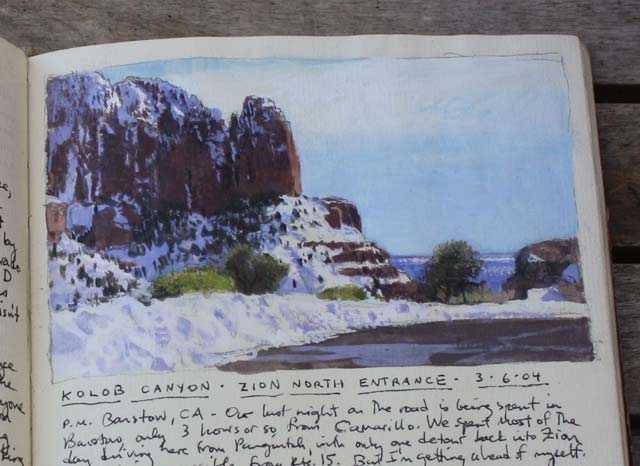 by
D
is
isn't
the
KOLOB CANYON · ZION NORTH ENTRANCE · 3·6·04
P.M. Barstow, CA - Our last night on the road is being spent in
Barstow, only 3 hours or so from Camarillo. We spent most of the
day driving here from Panguitch, with only one detour back into Zion
from Rte. 15. But I'm getting ahead of myself.